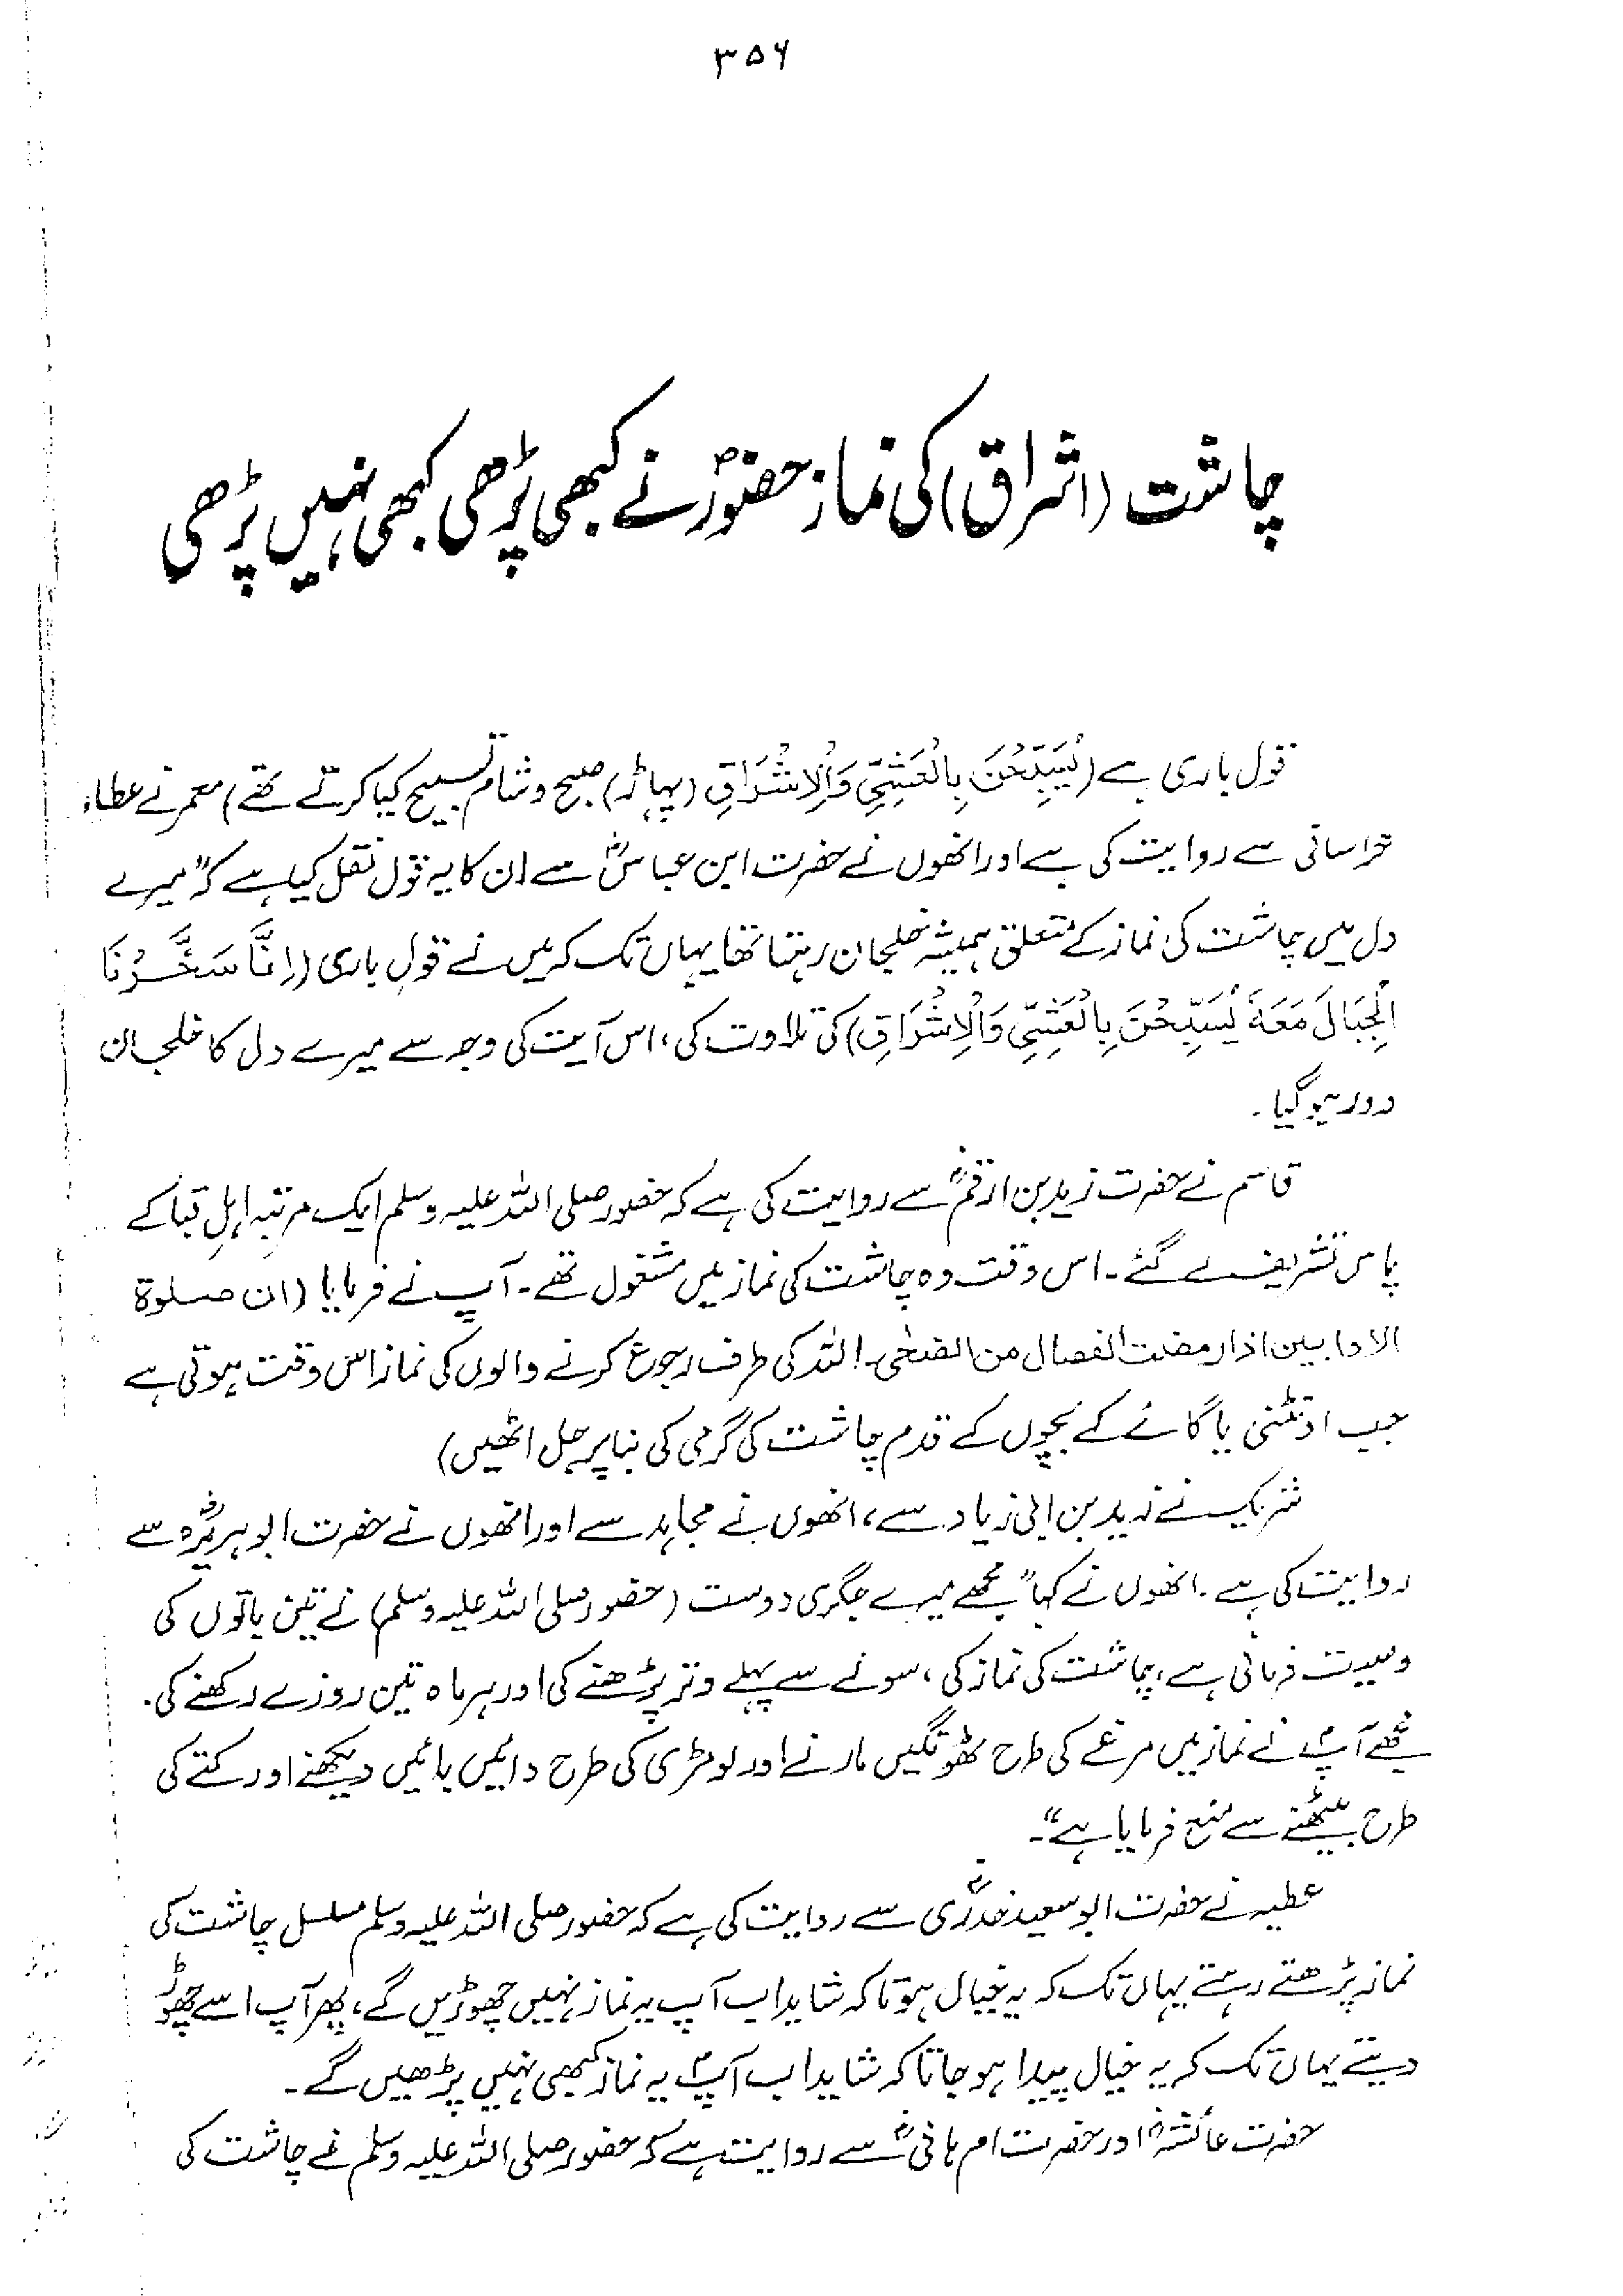 ۳۵۶
چاشت (اشراق) کی نماز حضورؐ نے کبھی پڑھی کبھی نہیں پڑھی
قول باری ہے (یُسَبِّحْنَ بِالْعَشِیِّ وَالْاِشْرَاقِ (پہاڑ) صبح و شام تسبیح کیا کرتے تھے) معمر نے عطاء
خراسانی سے روایت کی ہے اور انھوں نے حضرت ابن عباسؓ سے ان کا یہ قول نقل کیا ہے کہ "میرے
دل میں چاشت کی نماز کے متعلق ہمیشہ خلجان رہتا تھا یہاں تک کہ میں نے قولِ باری (اِنَّا سَخَّرْنَا
الْجِبَالَ مَعَهٗ یُسَبِّحْنَ بِالْعَشِیِّ وَالْاِشْرَاقِ) کی تلاوت کی، اس آیت کی وجہ سے میرے دل کا خلجان
دور ہو گیا۔
قاسم نے حضرت زید بن ارقمؓ سے روایت کی ہے کہ حضور صلی اللہ علیہ وسلم ایک مرتبہ اہلِ قبا کے
پاس تشریف لے گئے۔ اس وقت وہ چاشت کی نماز میں مشغول تھے۔ آپ نے فرمایا (ان صلوۃ
الاوابین اذا رمضت الفصال من الضحٰی۔ اللہ کی طرف رجوع کرنے والوں کی نماز اس وقت ہوتی ہے
جب اونٹنی یا گائے کے بچوں کے قدم چاشت کی گرمی کی بنا پر جل اٹھیں)
شریک نے زید بن ابی زیاد سے، انھوں نے مجاہد سے اور انھوں نے حضرت ابو ہریرہؓ سے
روایت کی ہے۔ انھوں نے کہا "مجھے میرے جگری دوست (حضور صلی اللہ علیہ وسلم) نے تین باتوں کی
وصیت فرمائی ہے، چاشت کی نماز کی، سونے سے پہلے وتر پڑھنے کی اور ہر ماہ تین روزے رکھنے کی۔
مجھے آپؐ نے نماز میں مرغے کی طرح ٹھونگیں مارنے اور لومڑی کی طرح دائیں بائیں دیکھنے اور کتے کی
طرح بیٹھنے سے منع فرمایا ہے"۔
عطیہ نے حضرت ابوسعید خدریؓ سے روایت کی ہے کہ حضور صلی اللہ علیہ وسلم مسلسل چاشت کی
نماز پڑھتے رہتے یہاں تک کہ یہ خیال ہوتا کہ شاید اب آپ یہ نماز نہیں چھوڑیں گے، پھر آپ اسے چھوڑ
دیتے یہاں تک کہ یہ خیال پیدا ہو جاتا کہ شاید اب آپؐ یہ نماز کبھی نہیں پڑھیں گے۔
حضرت عائشہؓ اور حضرت ام ہانیؓ سے روایت ہے کہ حضور صلی اللہ علیہ وسلم نے چاشت کی